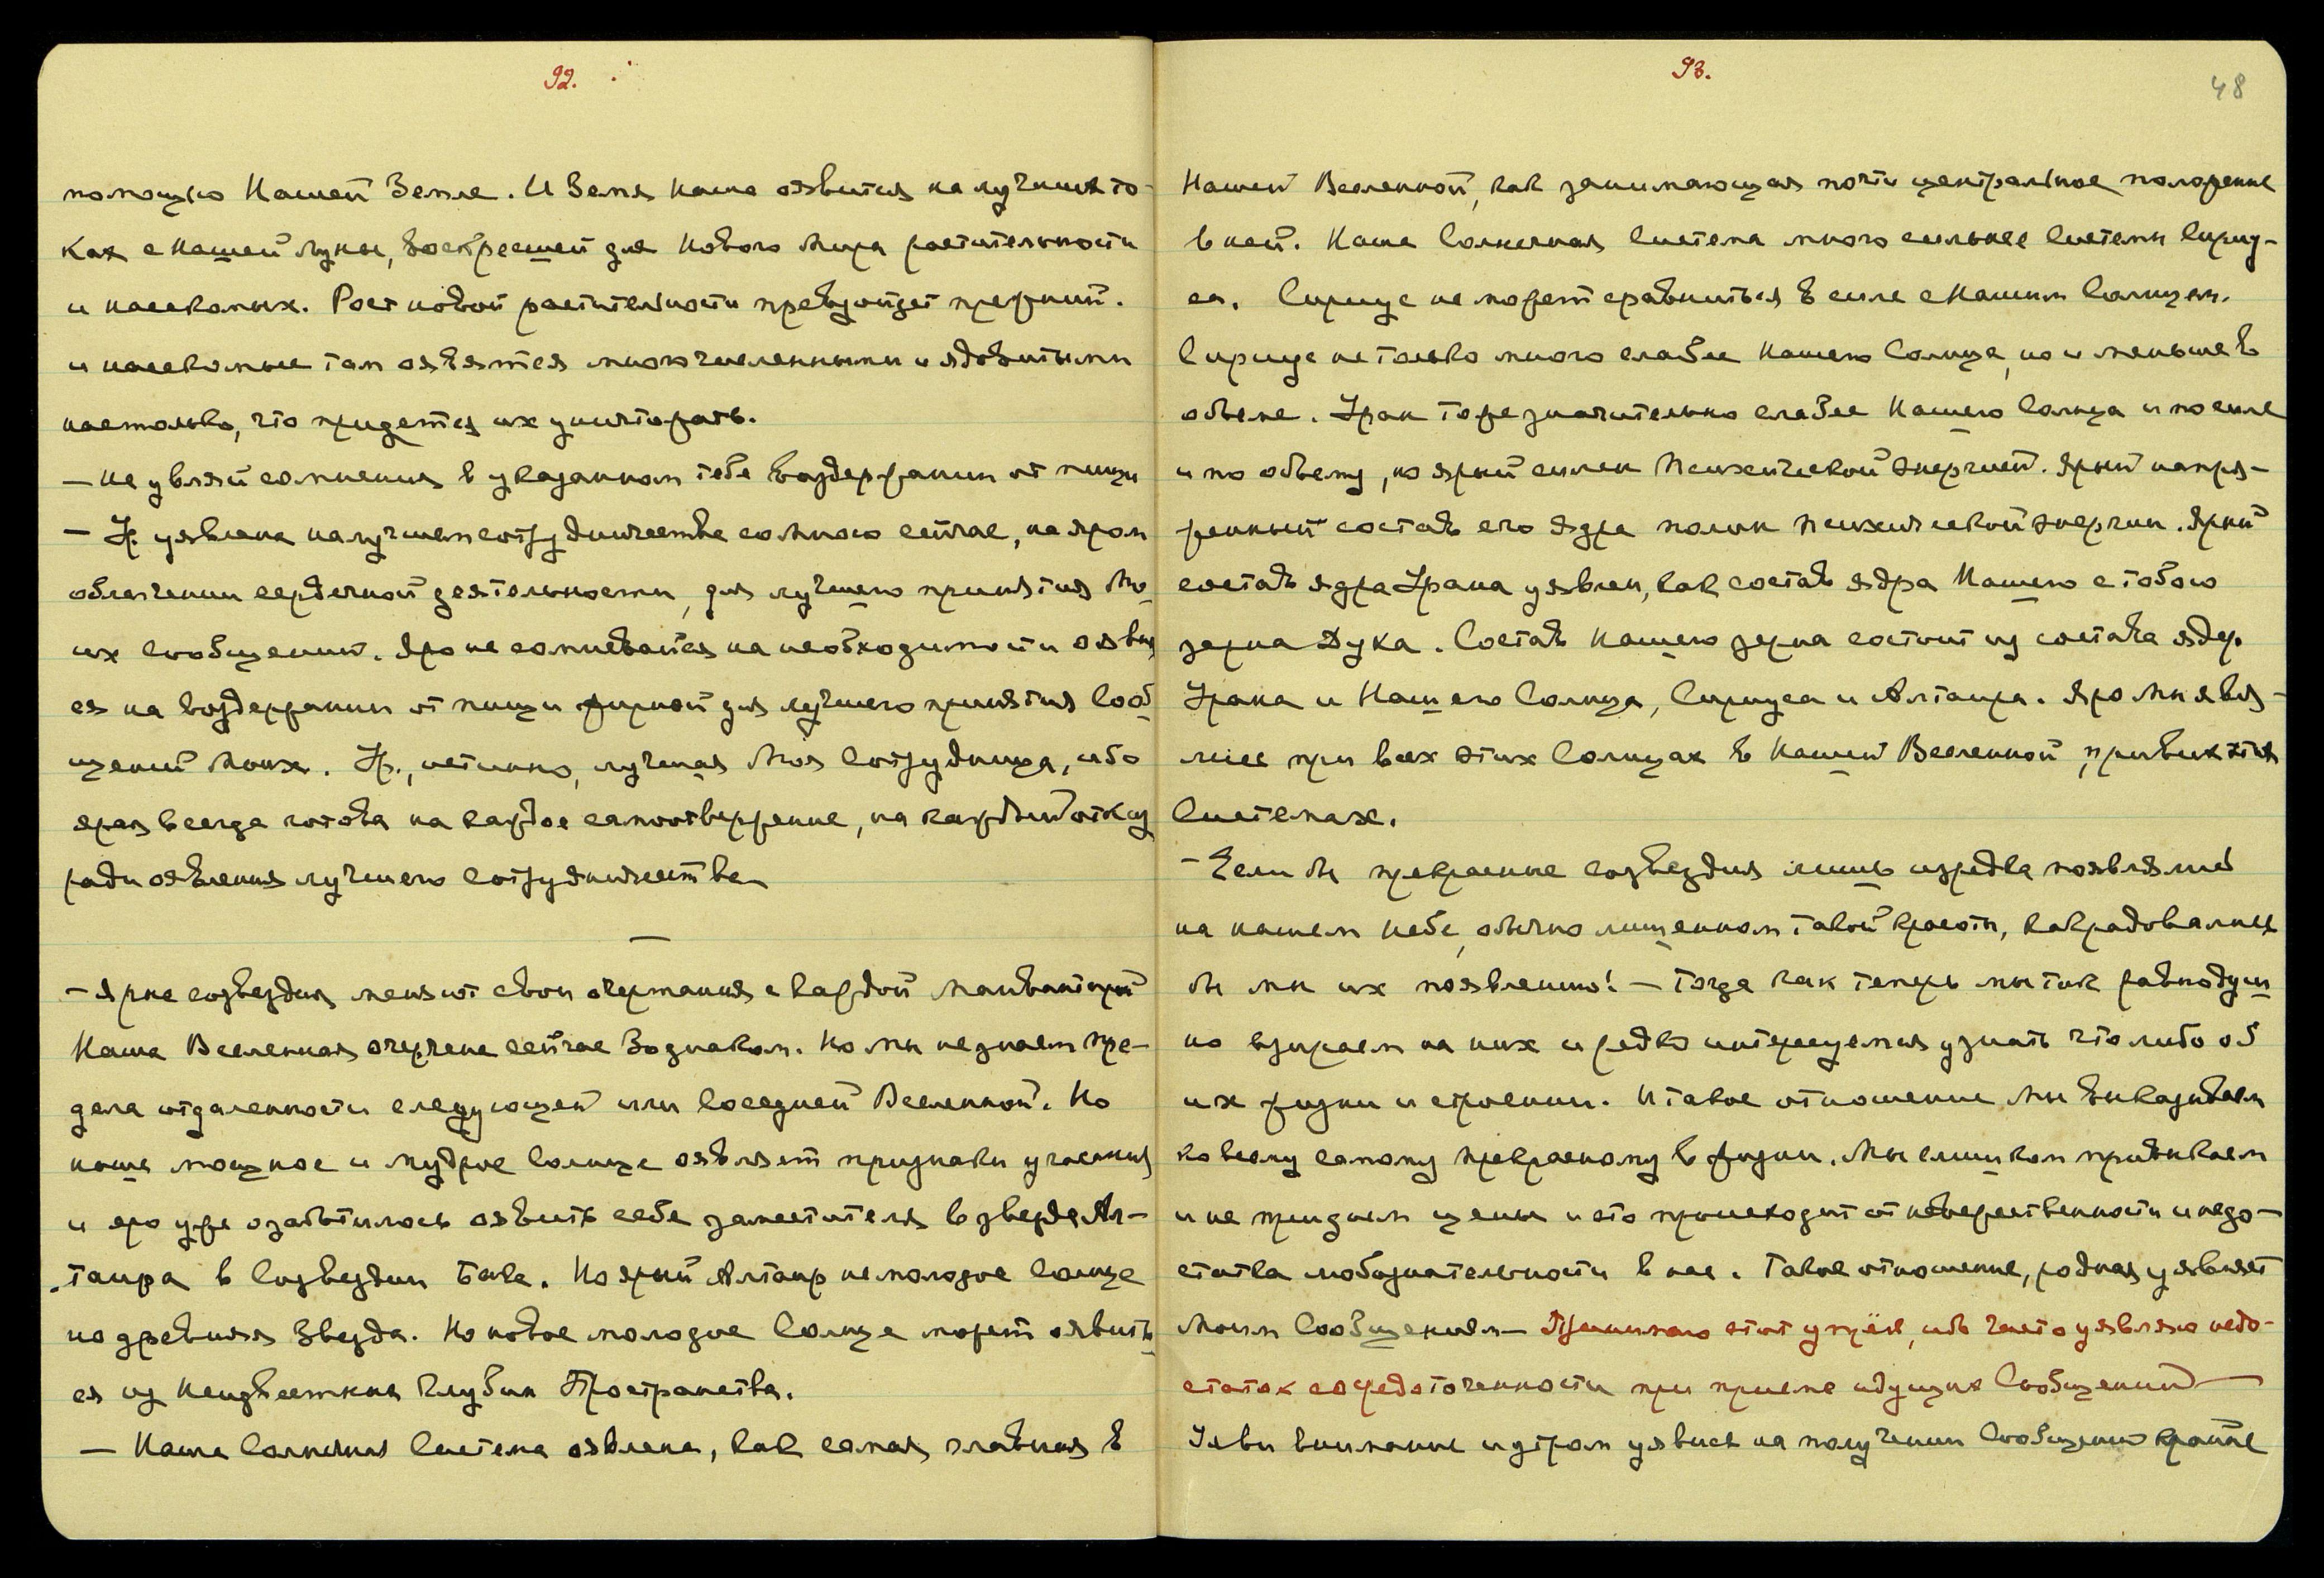 92.
помощью Нашей Земле. И Земля наша оявится на лучших то-
ках с нашей Луны, воскресшей для Нового Мира растительности
и насекомых. Рост новой растительности превзойдет прежний.
и насекомые там оявятся многочисленными и ядовитыми
настолько, что придется их уничтожать.
— не уявляй сомнения в указанном тебе воздержании от пищи
— Ур. уявлена на лучшем сотрудничестве со Мною сейчас, на яром
облегчении сердечной деятельности, для лучшего принятия Мо
их Сообщений. Яро не сомневайся на необходимости оявит
ся на воздержании от пищи жирной для лучшего принятия Сооб
щений Моих. Ур., истинно, лучшая Моя Сотрудница, ибо
ярая всегда готова на каждое самоотвержение, на каждый отказ
ради оявления лучшего сотрудничества
— Яркие созвездия меняют свои очертания с каждой Манвантарой
Наша Вселенная очерчена сейчас Зодиаком. Но мы не знаем пре-
дела отдаленности следующей или соседней Вселенной. Но
наше мощное и мудрое Солнце оявляет признаки угасания
и яро уже озаботилось оявить себе заместителя в звезде Ал-
таира в Созвездии Быка. Но ярый Алтаир не молодое Солнце
но древняя Звезда. Но новое молодое Солнце может оявить
ся из Неизвестных Глубин Пространства.
— Наша Солнечная Система оявлена, как самая главная в
93.
48
Нашей Вселенной, как занимающая почти центральное положение
в ней. Наша Солнечная Система много сильнее Системы Сириу-
са. Сириус не может сравниться в силе с Нашим Солнцем.
Сириус не только много слабее Нашего Солнца, но и меньше в
объеме. Уран тоже значительно слабее Нашего Солнца и по силе
и по объему, но ярый силен психической энергией. Ярый напря-
женный состав его ядра полон психической энергии. Ярый
состав ядра Урана уявлен, как состав ядра Нашего с тобою
зерна Духа. Состав Нашего зерна состоит из состава ядер
Урана и Нашего Солнца, Сириуса и Алтаира. Яро Мы явля-
лись при всех этих Солнцах в Нашей Вселенной, при всех этих
Системах.
— Если бы прекрасные созвездия лишь изредка появлялись
на нашем небе, обычно лишенном такой красоты, как радовались
бы мы их появлению! — Тогда как теперь мы так равнодуш
но взираем на них и редко интересуемся узнать что либо об
их жизни и строении. И такое отношение мы выказываем
ко всему самому прекрасному в жизни. Мы слишком привыкаем
и не придаем цены и это происходит от невежественности и недо-
статка любознательности в нас. Такое отношение, родная, уявляет
Моим Сообщениям — Принимаю этот упрёк, ибо часто уявляю недо-
статок сосредоточенности при приеме идущих Сообщений —
Уяви внимание и утром уявись на получении Сообщений крайне